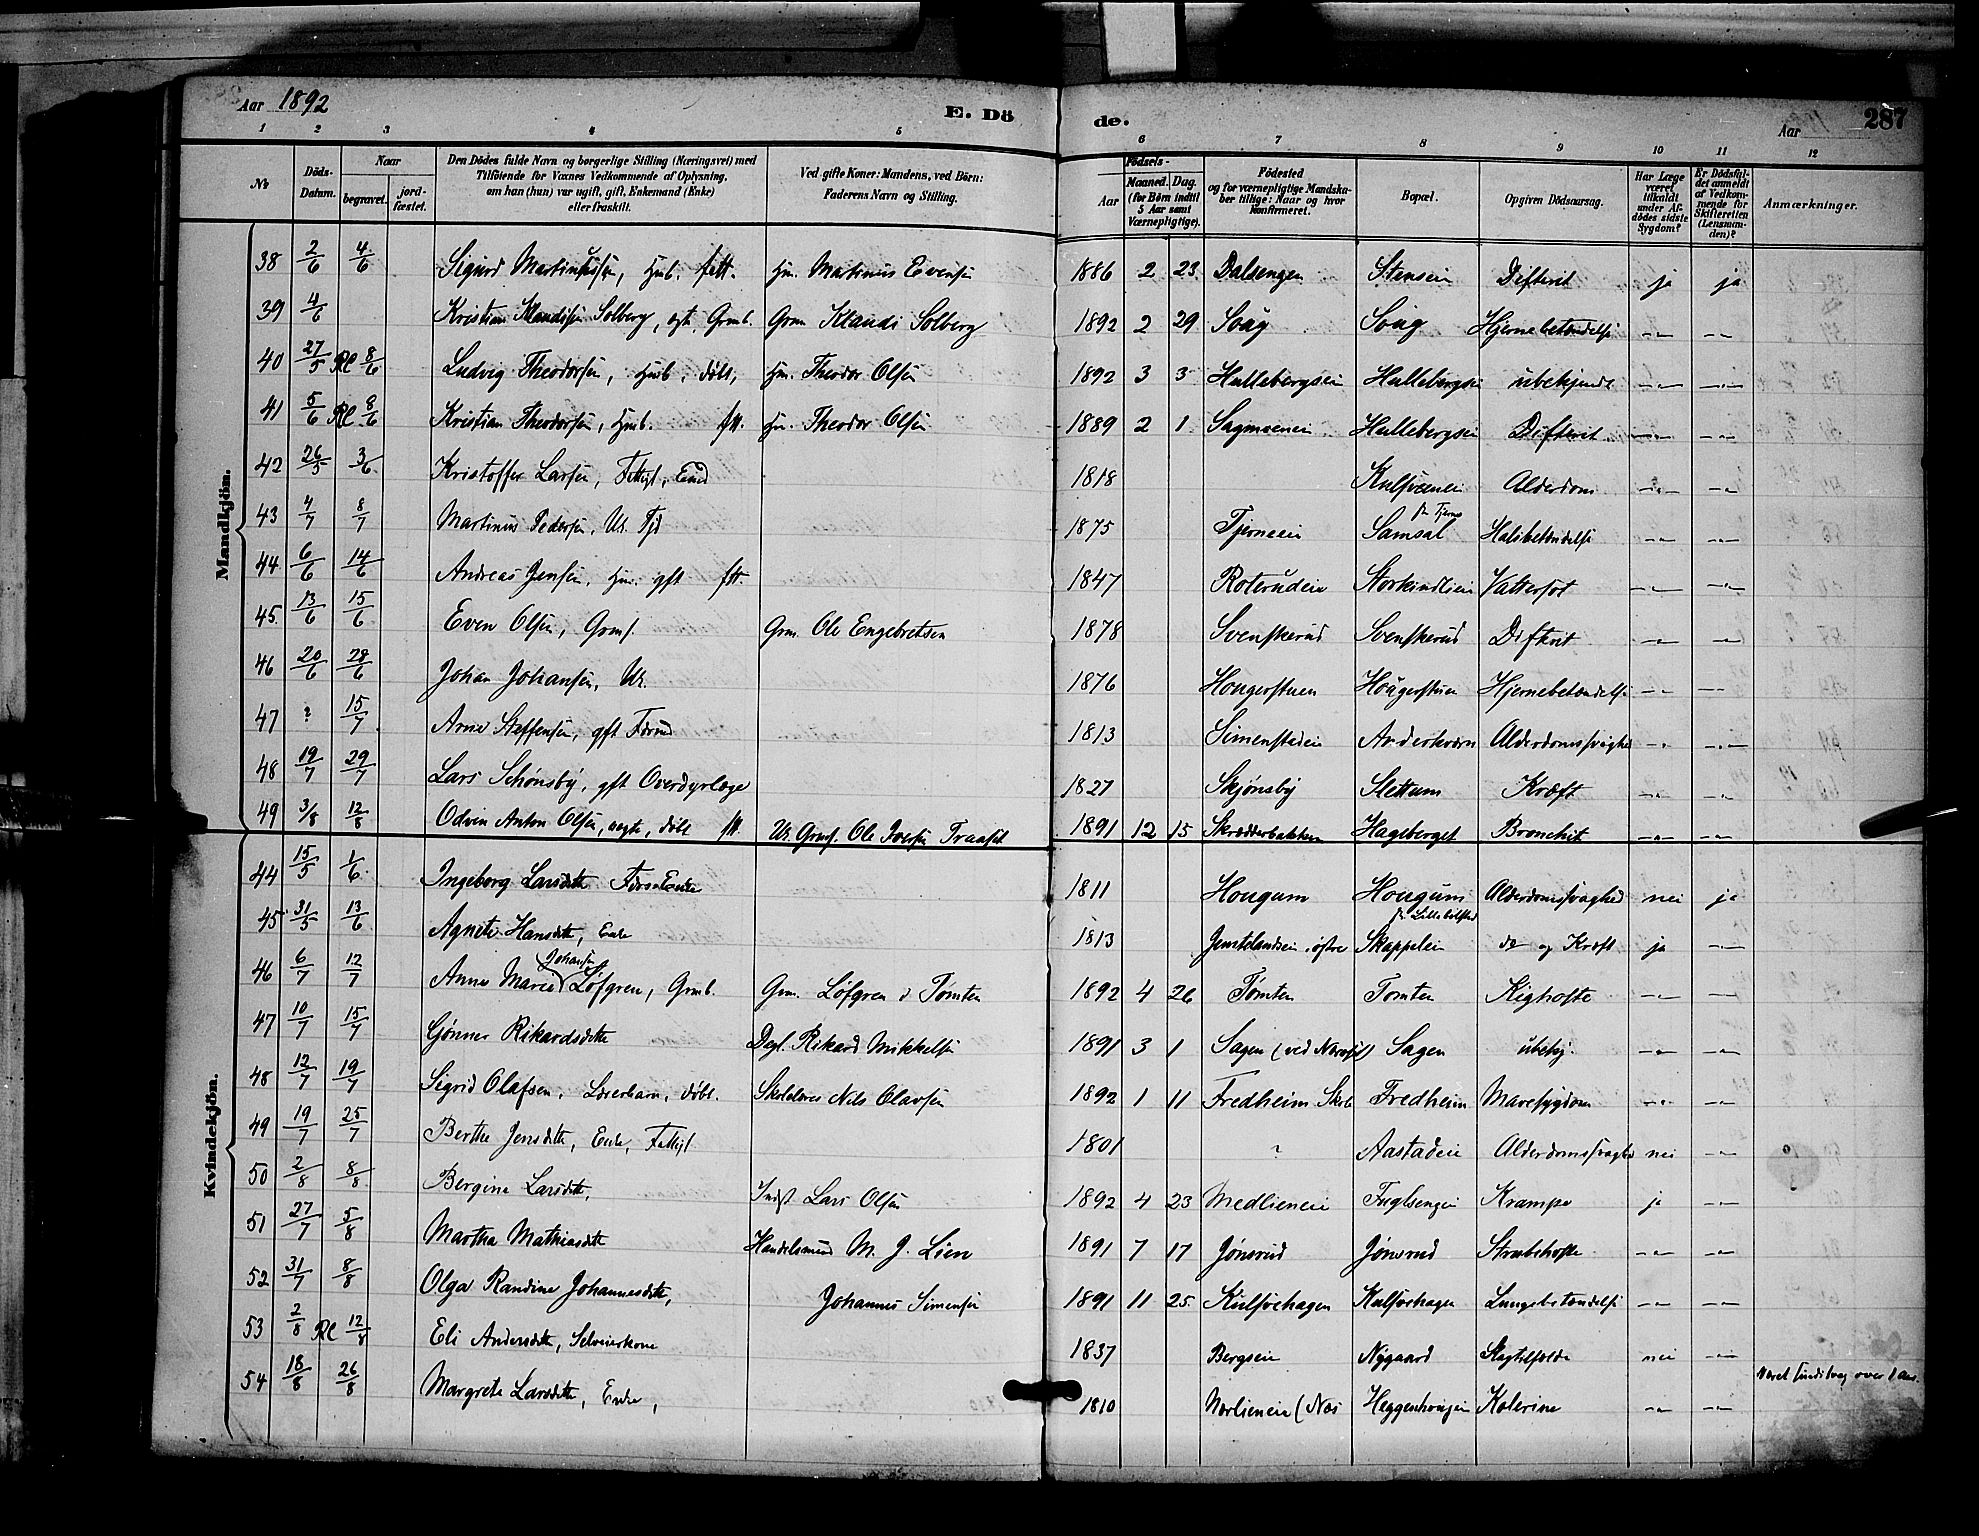 Aar 1892 E. Dö de. Aar 287
1 2 3 4 5 6 7 8 9 10 11 12
No Döds-Datum. Naar begravet. jord-fæstet. Den Dödes fulde Navn og borgerlige Stilling (Næringsvei) med Tilföiende for Voxnes Vedkommende af Oplysning, om han (hun) var ugift, gift, Enkemand (Enke) eller fraskilt. Ved gifte Koner: Mandens, ved Börn: Faderens Navn og Stilling. Födsels- Aar Maaned. Dag. (for Börn indtil 5 Aar samt Værnepligtige). Födested og for værnepligtige Mandskaber tillige: Naar og hvor Konfirmeret. Bopæl. Opgiven Dödsaarsag. Har Læge været tilkaldt under Afdödes sidste Sygdom? Er Dödsfaldet anmeldt af Vedkommende for Skifteretten (Lensmanden)? Anmærkninger.
Mandkjön.
38 2/6 4/6 Sigurd Martinussen, Hmb. fatt. Hm. Martinus Evensen 1886 2 23 Dalsengen Stenseie Difterit ja ja
39 4/6 Kristian Klaudisen Solberg, ægt. Grmb. Grm Klaudi Solberg 1892 2 29 Soug Soug Hjernebetændelse -"- -"-
40 27/5 Rl 8/6 Ludvig Theodorsen, Hmb, døbt, Hm. Theodor Olsen 1892 3 3 Hullebergseie Hullebergseie ubekjendt -"- -"-
41 5/6 Rl 8/6 Kristian Theodorsen, Hmb. ftt. Hm. Theodor Olsen 1889 2 1 Sagmoeneie Hullebergseie Difterit -"- -"-
42 26/5 3/6 Kristoffer Larsen, Fattigl, Emd 1818 Kulsveeneie Alderdom -"- -"-
43 4/7 8/7 Martinus Pedersen, Ur. Tjd 1875 Tjerneeie Samsal fr Tjerne Halsbetændelse -"- -"-
44 6/6 14/6 Andreas Jensen, Hm. gft ftt. 1847 Roterudeie Storkindlieie Vattersot -"- -"-
45 13/6 15/6 Even Olsen, Grms. Grm. Ole Engebretsen 1878 Svenskerud Svenskerud Difterit -"- -"-
46 20/6 28/6 Johan Johansen, Ur. 1876 Hougerstuen Hougerstuen Hjernebetændelse -"- -"-
47 ? 15/7 Arne Steffensen, gft Fdrmd 1813 Simenstadeie Anderkværn Alderdomssvaghed -"- -"-
48 19/7 29/7 Lars Schønsby, gft Overdyrlæge 1827 Skjønsby Slettum Kræft -"- -"-
49 3/8 12/8 Odvin Anton Olsen, uægte, døbt ftt. Ur. Grms. Ole Iversen Traaset 1891 12 15 Skrædderbakken Hageberget Bronchit -"- -"-
Kvindekjön.
44 15/5 1/6 Ingeborg Larsdtt Fdrs Enke 1811 Hougum Hougum Alderdomssvaghed nei ja
45 31/5 13/6 Agnete Hansdtt, Enke 1813 Jemtelandseie, østre Skappeleie fr Lillebølsted do og Kræft ja -"-
46 6/7 12/7 Anne Marie Johanse Løfgren, Grmb. Grm. Løfgren d Tomten 1892 4 26 Tomten Tomten Kighoste -"- -"-
47 10/7 15/7 Gjønner Rikardsdtte Dagl. Rikard Mikkelsen 1891 3 1 Sagen (ved Sagen ubekj. -"- -"-
48 12/7 19/7 Sigrid Olafsen, Lærerbarn, døbt. Skolelærer Nils Olavsen 1892 1 11 Fredheim Skole Fredheim Mavesygdom -"- -"-
49 19/7 25/7 Berthe Jensdtt, Enke, Fattigl 1801 ? Aastadeie Alderdomssvaghed nei -"-
50 2/8 8/8 Bergine Larsdtt, Indst Lars Olsen 1892 4 23 Medlieneie Fuglsengen Krampe ja -"-
51 27/7 5/8 Martha Mathiasdtt Handelsmand M. J. Lien 1891 7 17 Jønsrud Jønsrud Strubehoste -"- -"-
52 31/7 8/8 Olga Randine Johannesdtt, Johannes Simensen 1891 11 25 Kulsvehagen Kulsvehagen Lungebetændelse -"- -"-
53 2/8 Rl 12/8 Eli Andersdtt, Selveierkone 1837 Bergseie Nygaard Slagtilfælde nei -"-
54 18/8 26/8 Margrete Larsdtt, Enke, 1810 Norlieneie (Næs Heggenhougen Kolerine -"- -"- Været sindssvag over 1 Aar.